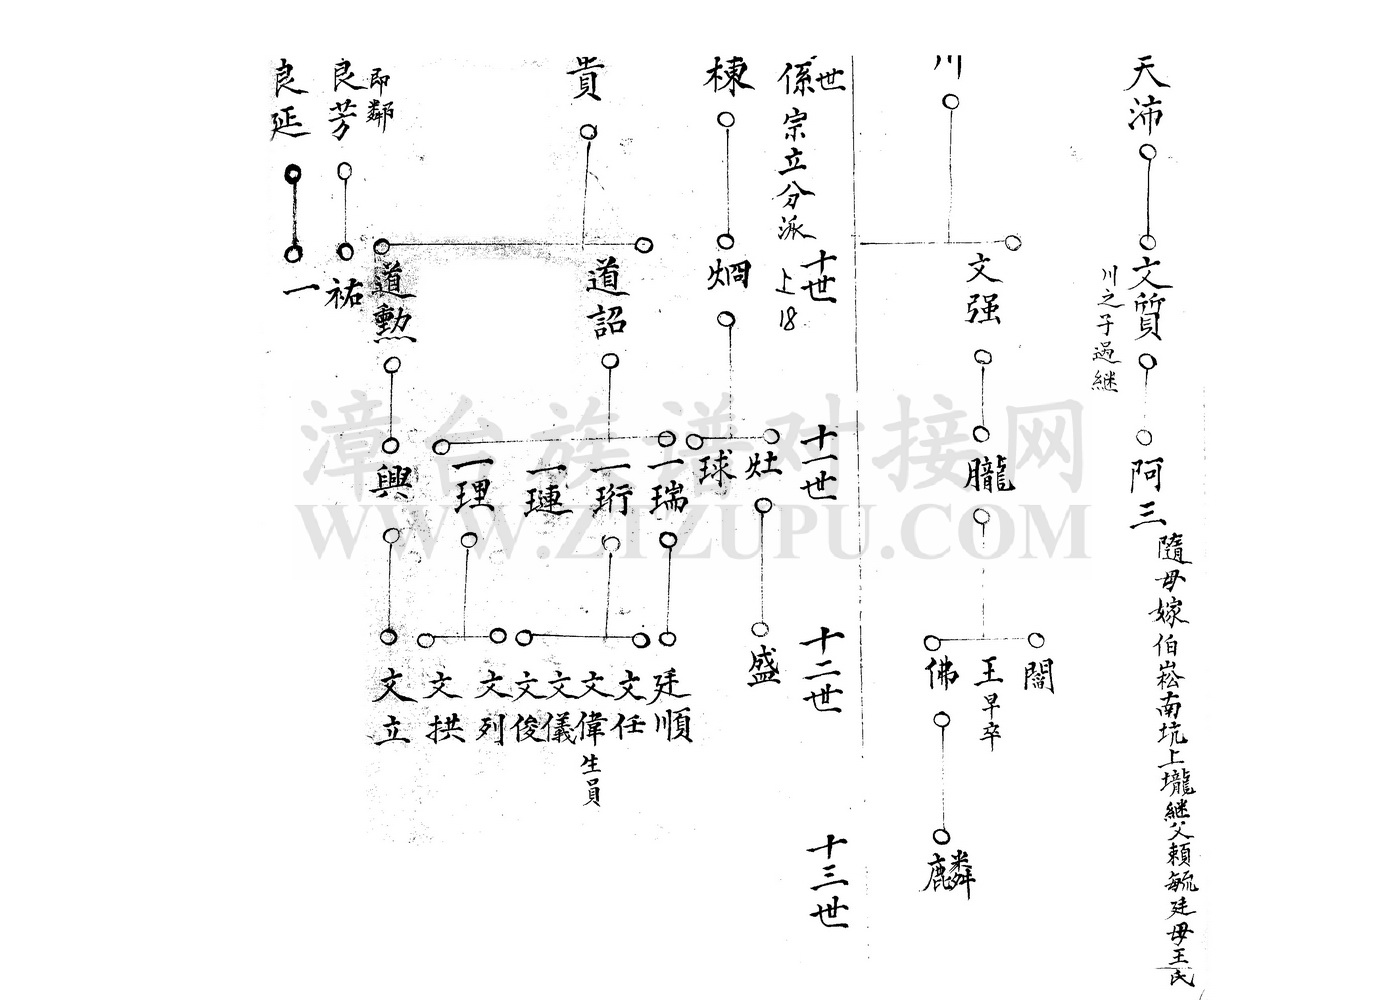 天沛
文質
川之子過継
阿三
隨母嫁伯崧南坑上壠継父賴毓廷母王氏
川
文强
朧
闊
王早卒
佛
麟
世
十世
十一世
十二世
十三世
係宗立分派 上18
棟
烱
灶
球
盛
貴
道詔
道勲
一瑞
一珩
一璉
一理
興
廷順
文任
文偉生員
文儀
文俊
文列
文拱
文立
良芳
即鄰
祐
良延
一
漳台族谱对接网
WWW.ZIZUPU.COM